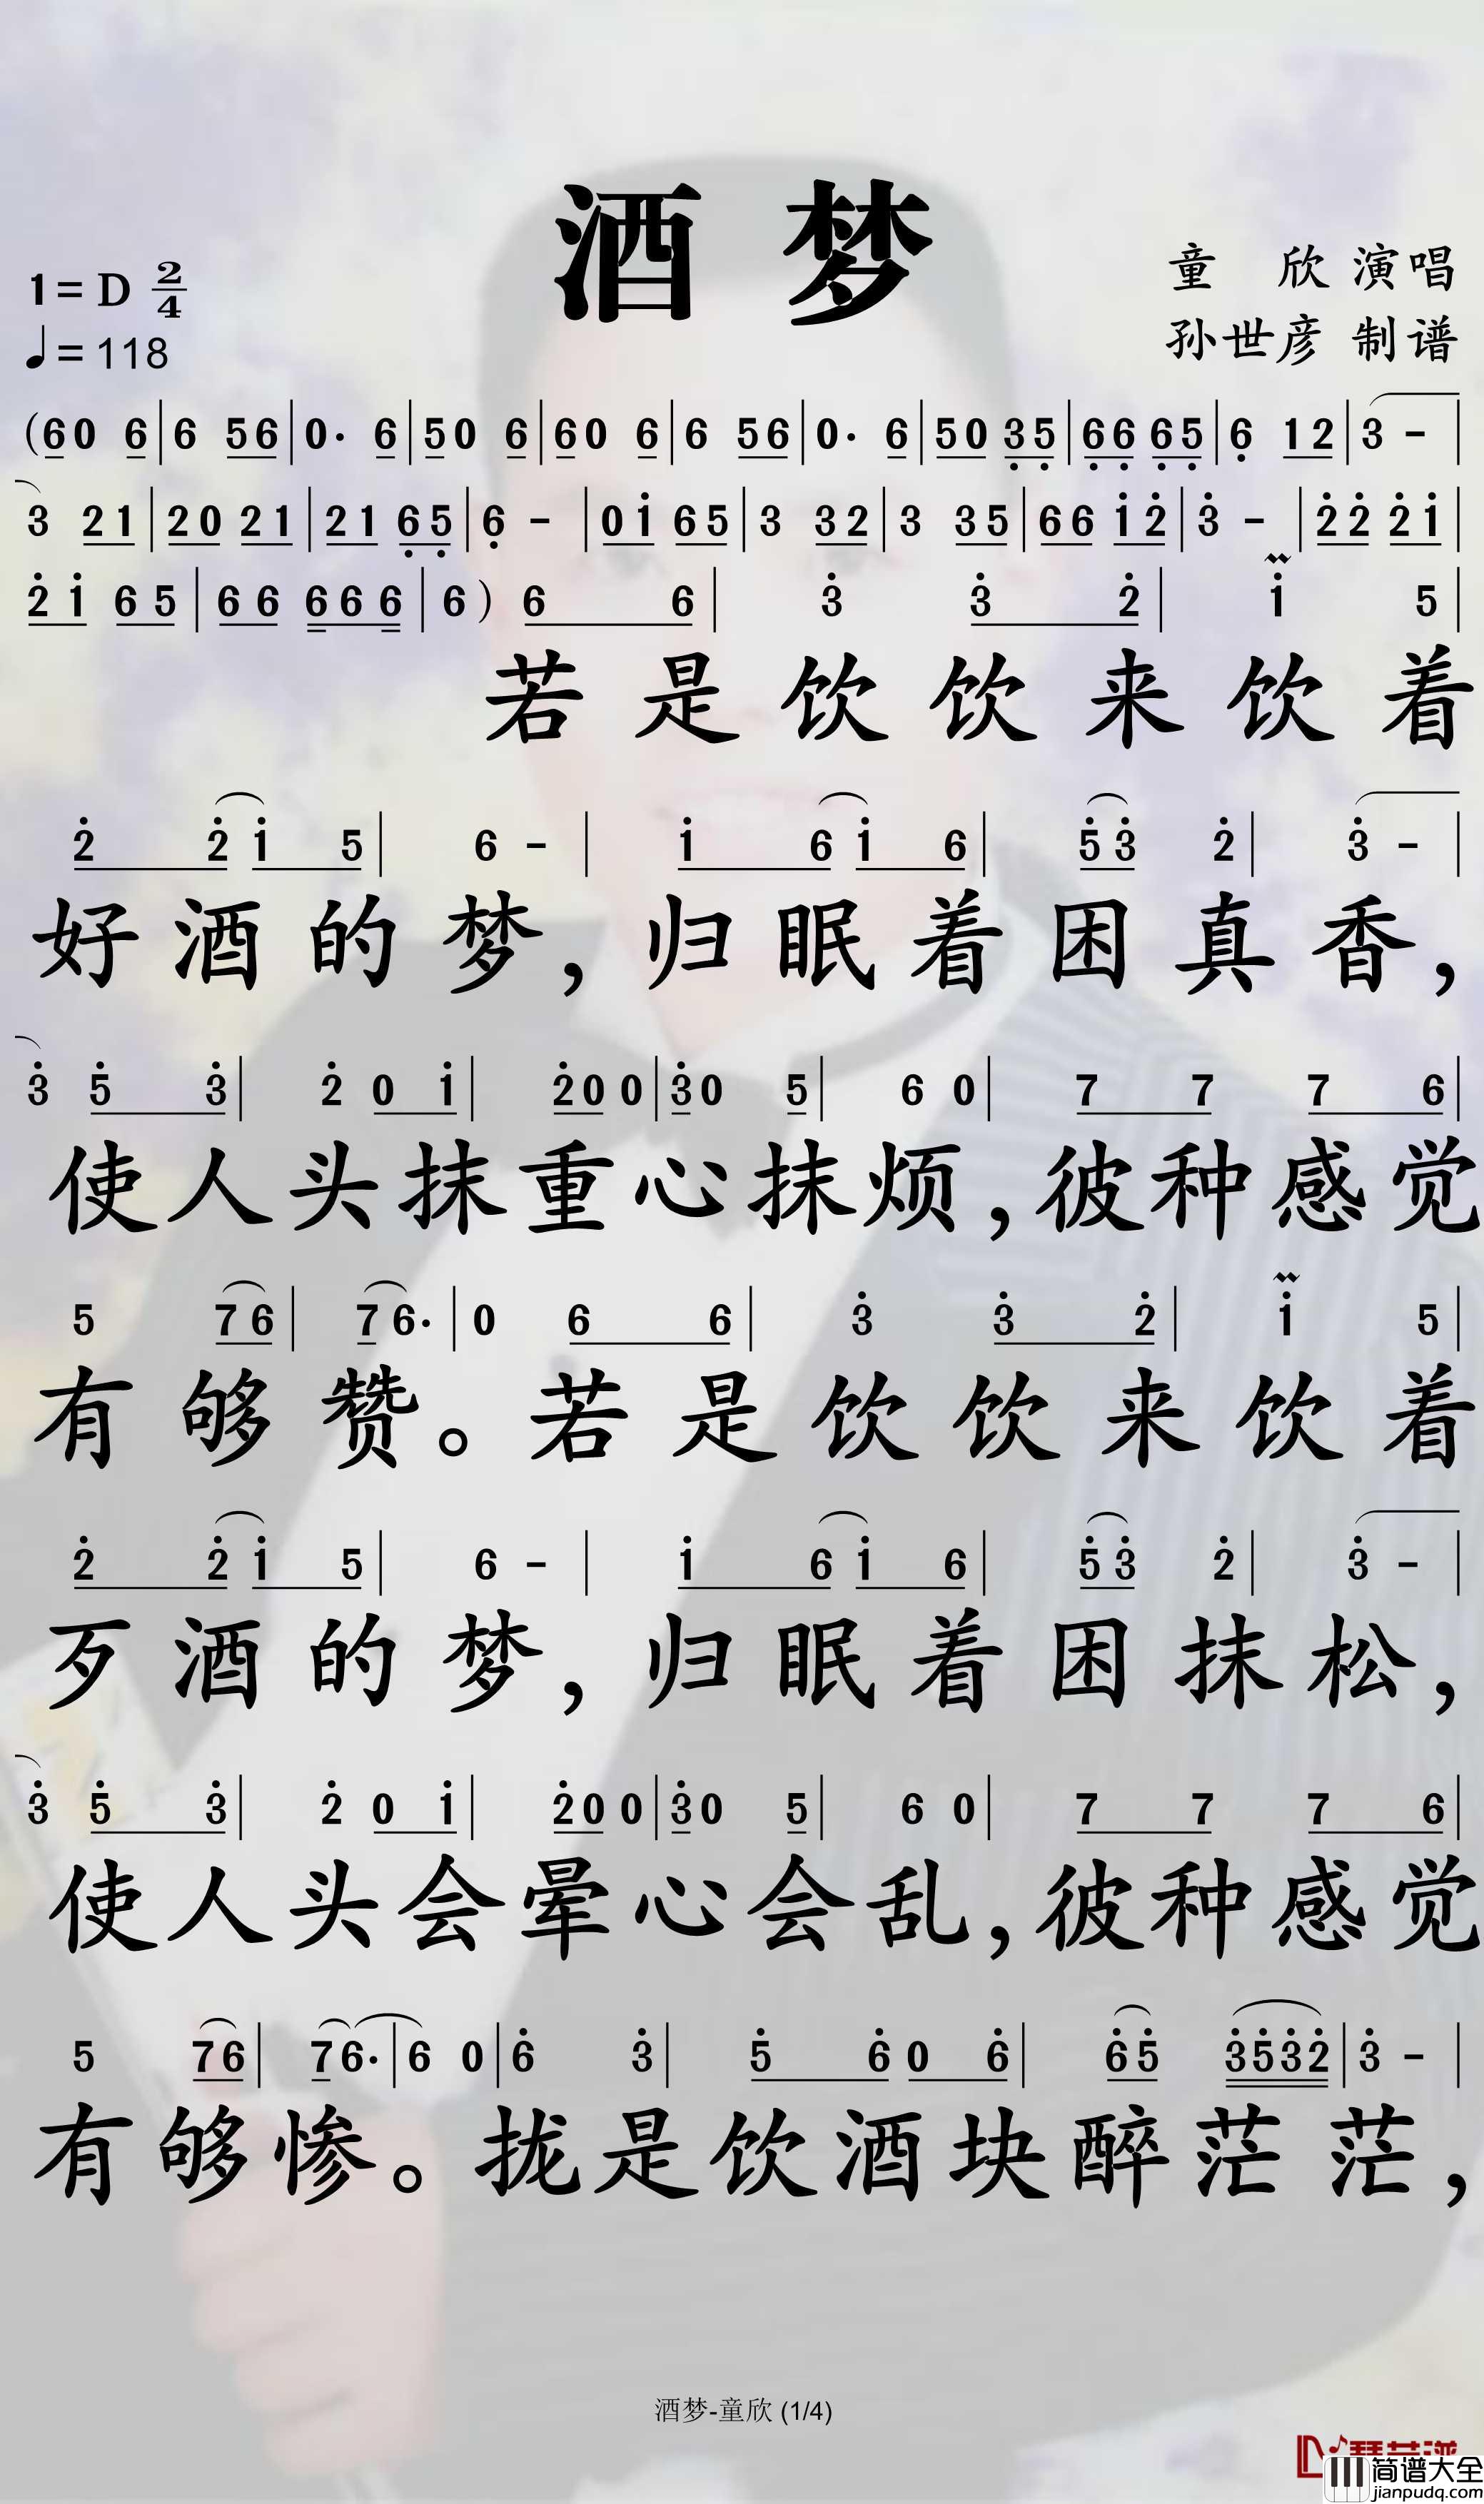 酒 梦
1=D 2/4
♩=118
童 欣 演唱
孙世彦 制谱
(60 6|6 56|0· 6|50 6|60 6|6 56|0· 6|50 3̣5̣|6̣6̣ 6̣5̣|6̣ 12|3 -|
3 21|20 21|21 6̣5̣|6̣ -|0i 65|3 32|3 35|66 i2̇|3̇ -|2̇2̇ 2̇i|
2̇i 65|66 666|6) 6 6|3̇ 3̇ 2̇|i 5|
若是饮饮来饮着
2̇ 2̇i 5|6 -|i 6i 6|5̇3̇ 2̇|3̇ -|
好酒的梦,归眠着困真香,
3̇ 5̇ 3̇|2̇ 0 i|2̇0 0|3̇0 5|6 0|7 7 7 6|
使人头抹重心抹烦,彼种感觉
5 76|76·|0 6 6|3̇ 3̇ 2̇|i 5|
有够赞。若是饮饮来饮着
2̇ 2̇i 5|6 -|i 6i 6|5̇3̇ 2̇|3̇ -|
歹酒的梦,归眠着困抹松,
3̇ 5̇ 3̇|2̇ 0 i|2̇0 0|3̇0 5|6 0|7 7 7 6|
使人头会晕心会乱,彼种感觉
5 76|76·|6 0|6̇ 3̇|5̇ 6̇ 0 6̇|6̇5̇ 3̇5̇3̇2̇|3̇ -|
有够惨。拢是饮酒块醉茫茫,
酒梦-童欣 (1/4)
简谱大全
jianpudq.com